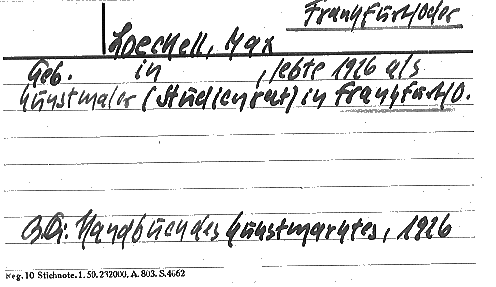 Frankfurt/Oder
Loeckell, Max
Geb. in , lebte 1926 als
Kunstmaler (Studienrat) in Frankfurt/O.
Qu: Handbuch des Kunstmarktes, 1926
Reg. 10 Stichnote. 1. 50. 232000. A. 803. S. 4662